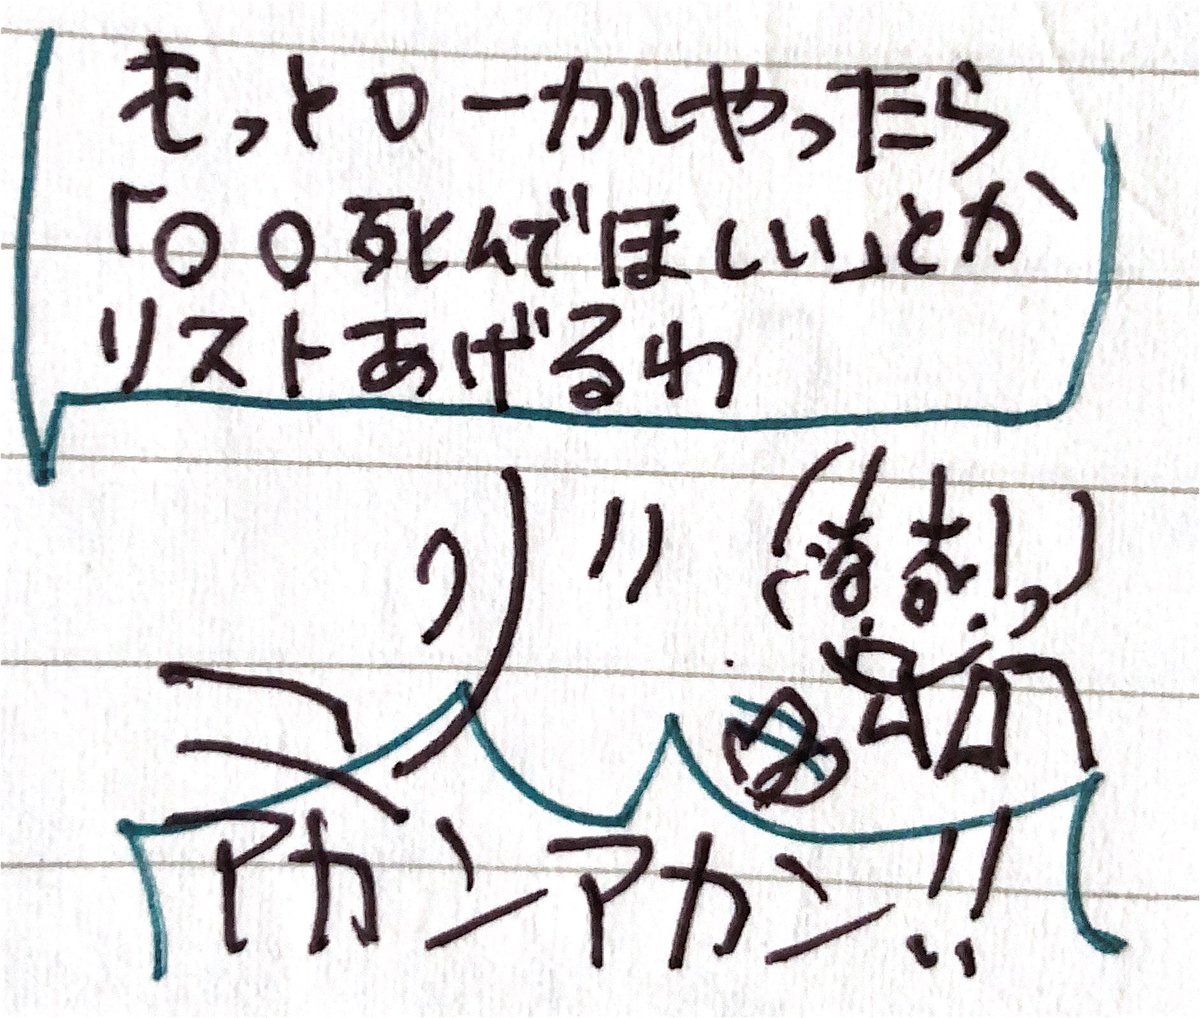 もっとローカルやったら
「〇〇死んでほしい」とか
リストあげるわ
アカンアカン!!